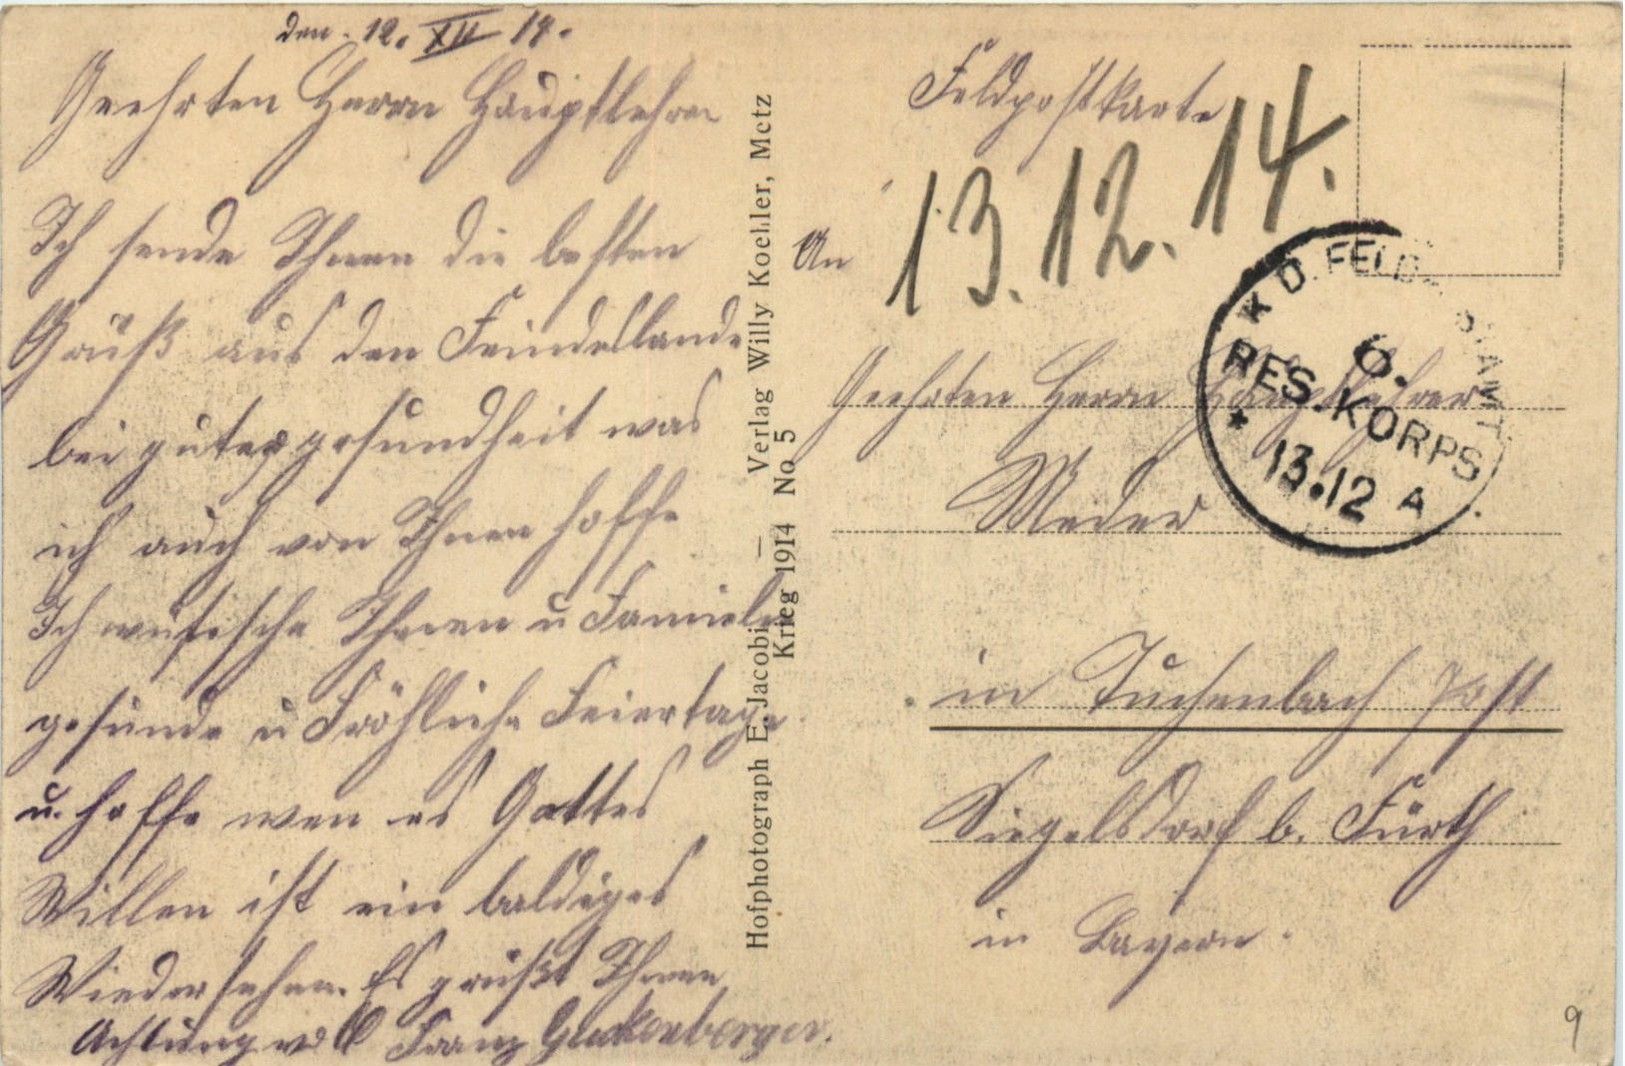 den. 12. XII 14.
Geehrten Herrn Hauptlehrer
Ich sende Ihnen die besten
Grüß aus den Feindeslande
bei guter gesundheit was
ich auch von Ihnen hoffe
Ich wünsche Ihnen u Famiele
gesunde u Fröhliche Feiertage
u. hoffe wen es Gottes
Willen ist ein baldiges
Wiedersehen. Es grüßt Ihnen
Achtungvoll Franz Guckenberger.
Hofphotograph E. Jacobi — Verlag Willy Koehler, Metz
Krieg 1914 No 5
Feldpostkarte
13.12.14.
An
Geehrten Herrn Hauptlehrer
Meder
in Tuchenbach Post
Siegelsdorf b. Fürth
in Bayern.
K. D. FELD
6.
RES. KORPS
13.12 A
9